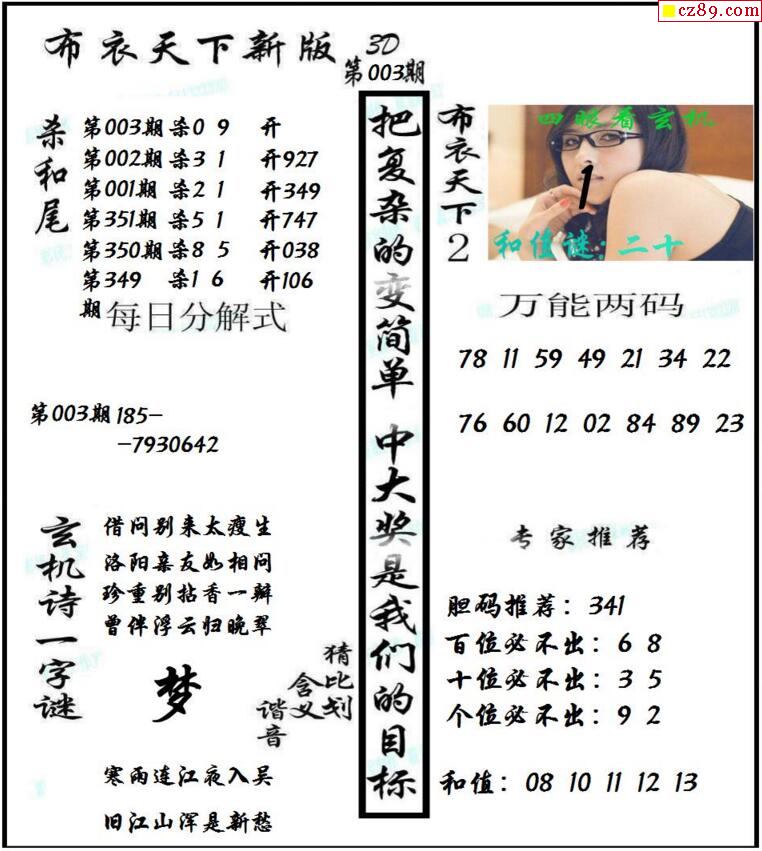 cz89.com
布衣天下新版 3D
第003期
杀和尾
第003期 杀0 9 开
第002期 杀3 1 开927
第001期 杀2 1 开349
第351期 杀5 1 开747
第350期 杀8 5 开038
第349期 杀1 6 开106
每日分解式
第003期 185-
-7930642
玄机诗一字谜
借问别来太瘦生
洛阳亲友如相问
珍重别拈香一瓣
曾伴浮云归晚翠
梦
猜比划
含义
谐音
寒雨连江夜入吴
旧江山浑是新愁
把复杂的变简单 中大奖是我们的目标
布衣天下2
四眼看玄机
1
和值谜:二十
万能两码
78 11 59 49 21 34 22
76 60 12 02 84 89 23
专家推荐
胆码推荐：341
百位必不出：6 8
十位必不出：3 5
个位必不出：9 2
和值：08 10 11 12 13